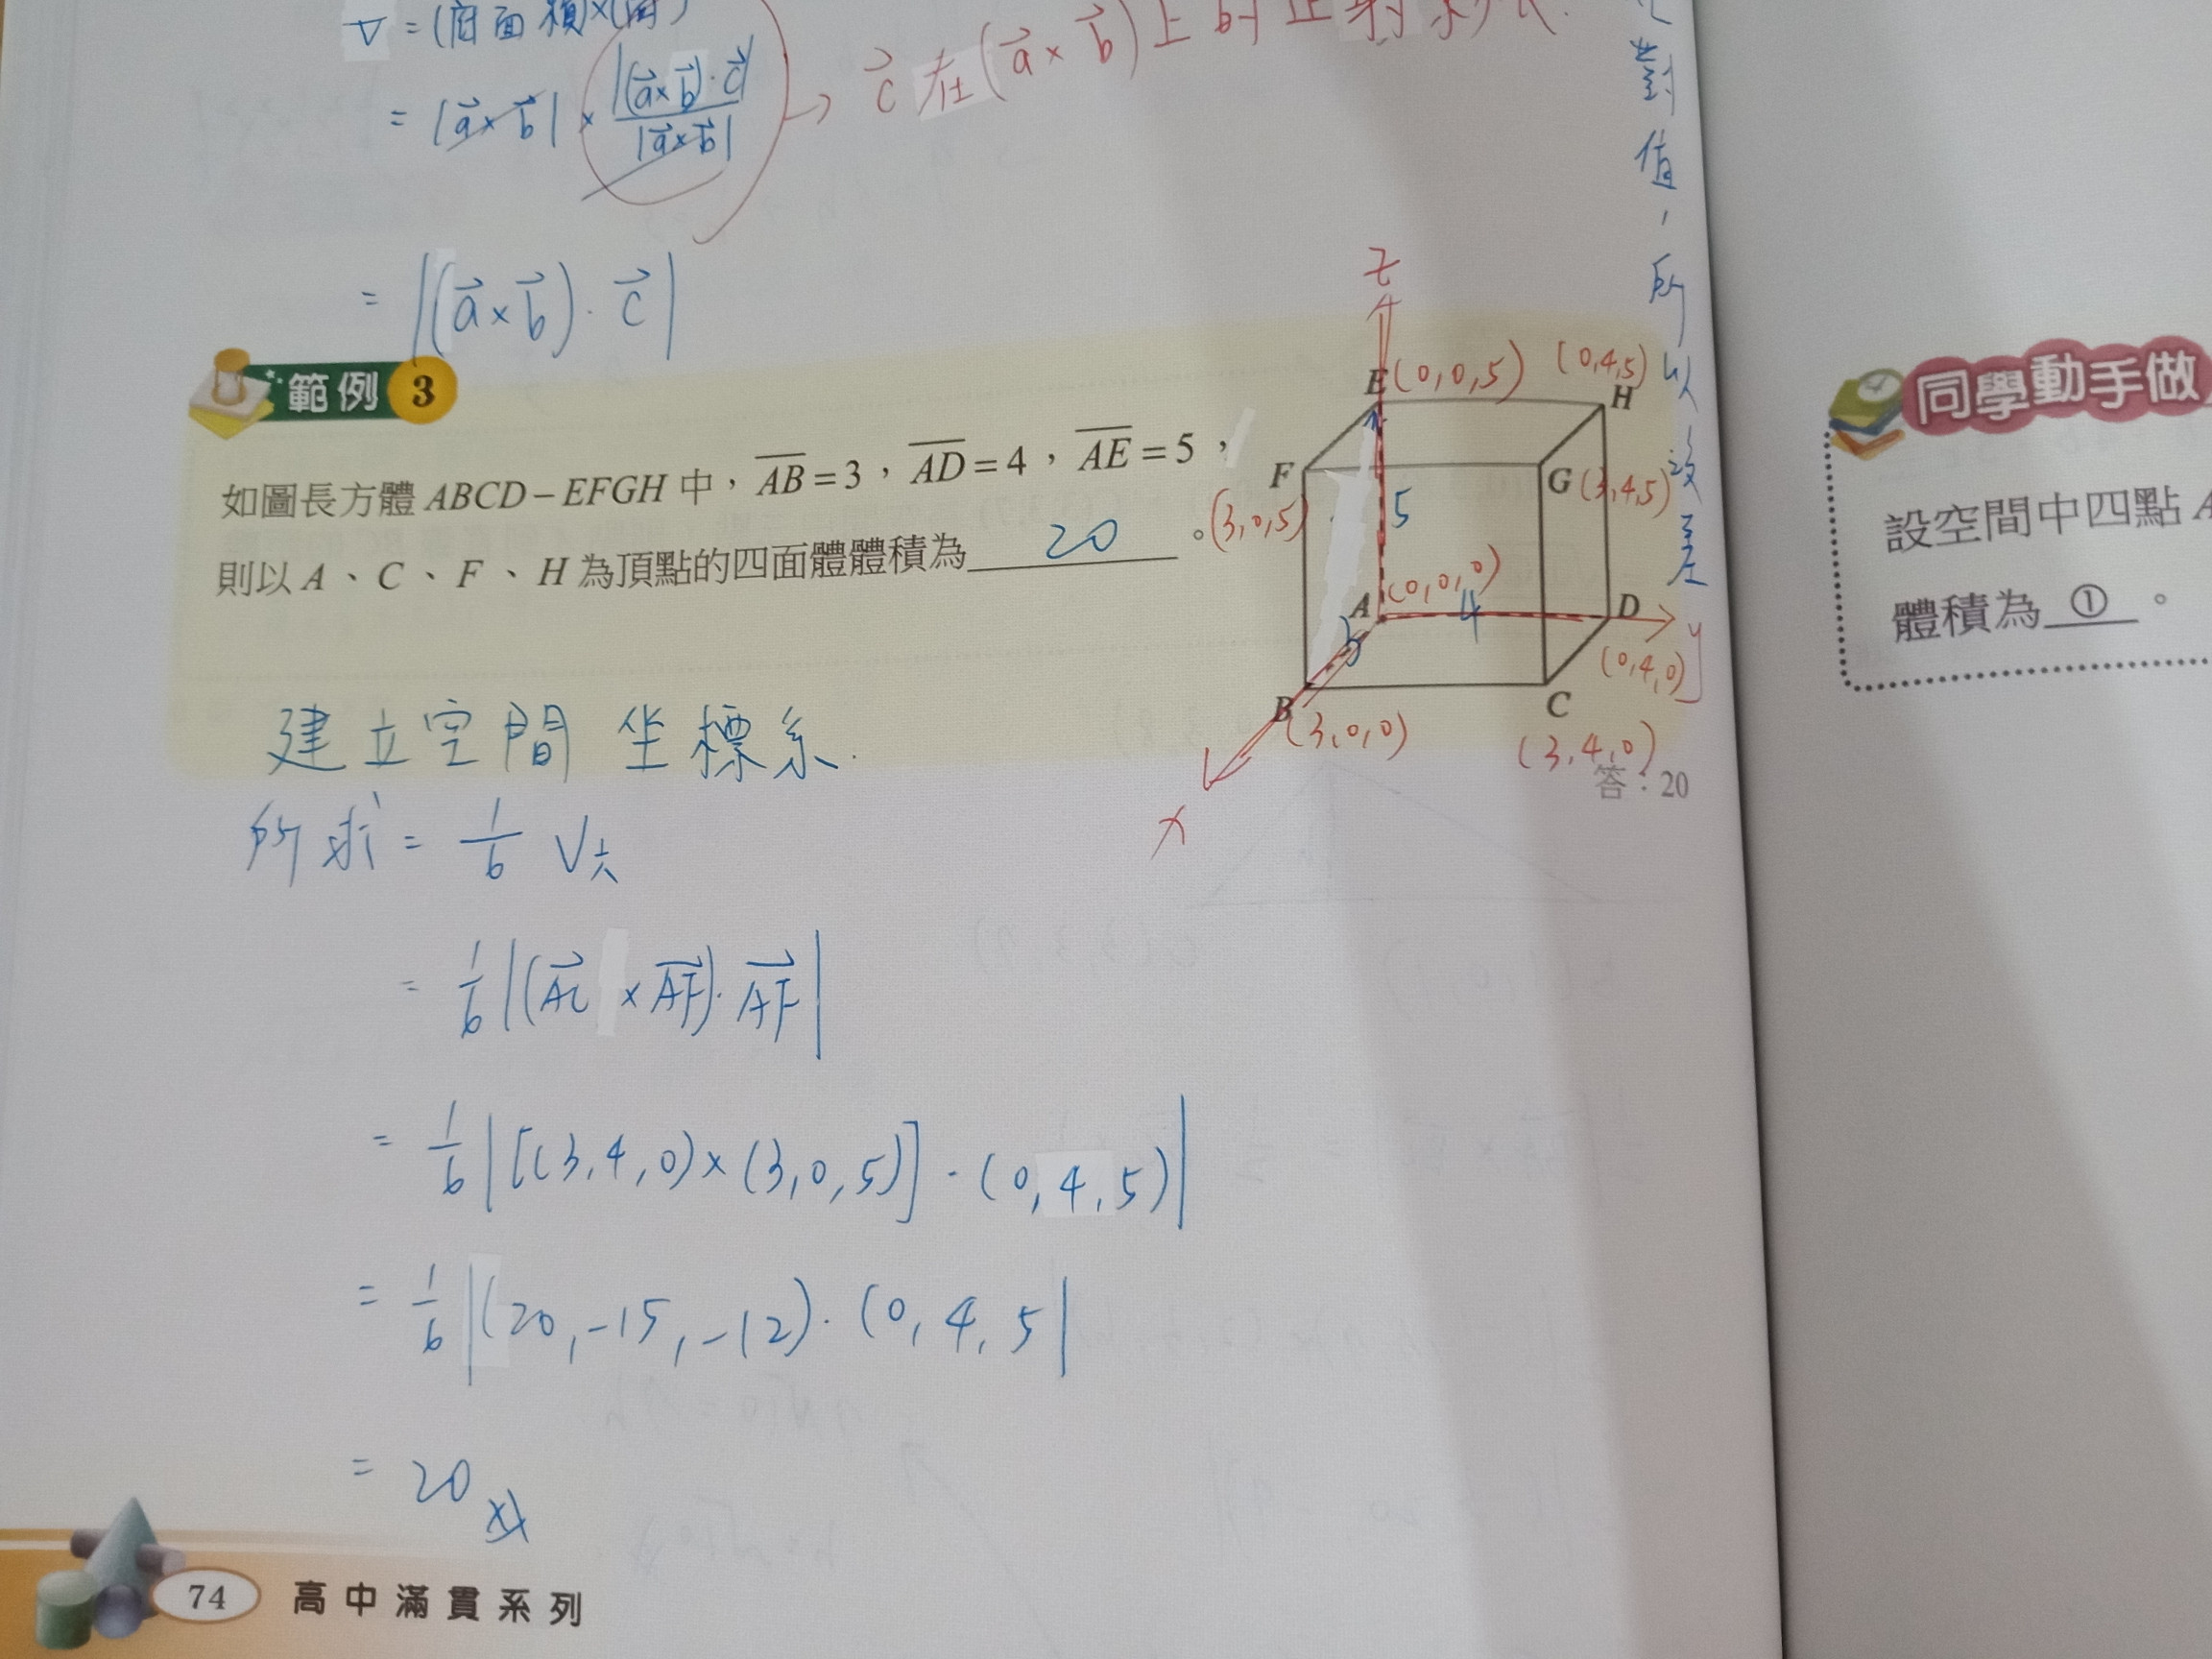 V = (底面積)×(高)
= |a⃗×b⃗| × |(a⃗×b⃗)·c⃗| / |a⃗×b⃗| → c⃗ 在 (a⃗×b⃗) 上的正射影
= |(a⃗×b⃗)·c⃗|
對值，所以沒差
範例 3
如圖長方體 ABCD–EFGH 中，AB=3，AD=4，AE=5，
則以 A、C、F、H 為頂點的四面體體積為 20 。
z
E (0,0,5) (0,4,5) H
F (3,0,5) G (3,4,5)
5
A (0,0,0) 4 D y
3 (0,4,0)
B (3,0,0) C (3,4,0)
x
答：20
建立空間坐標系.
所求 = 1/6 V六
= 1/6 |(AC⃗ × AF⃗)· AF⃗|
= 1/6 |[(3,4,0)×(3,0,5)]·(0,4,5)|
= 1/6 |(20,-15,-12)·(0,4,5|
= 20
74 高中滿貫系列
同學動手做
設空間中四點 A
體積為 ① 。